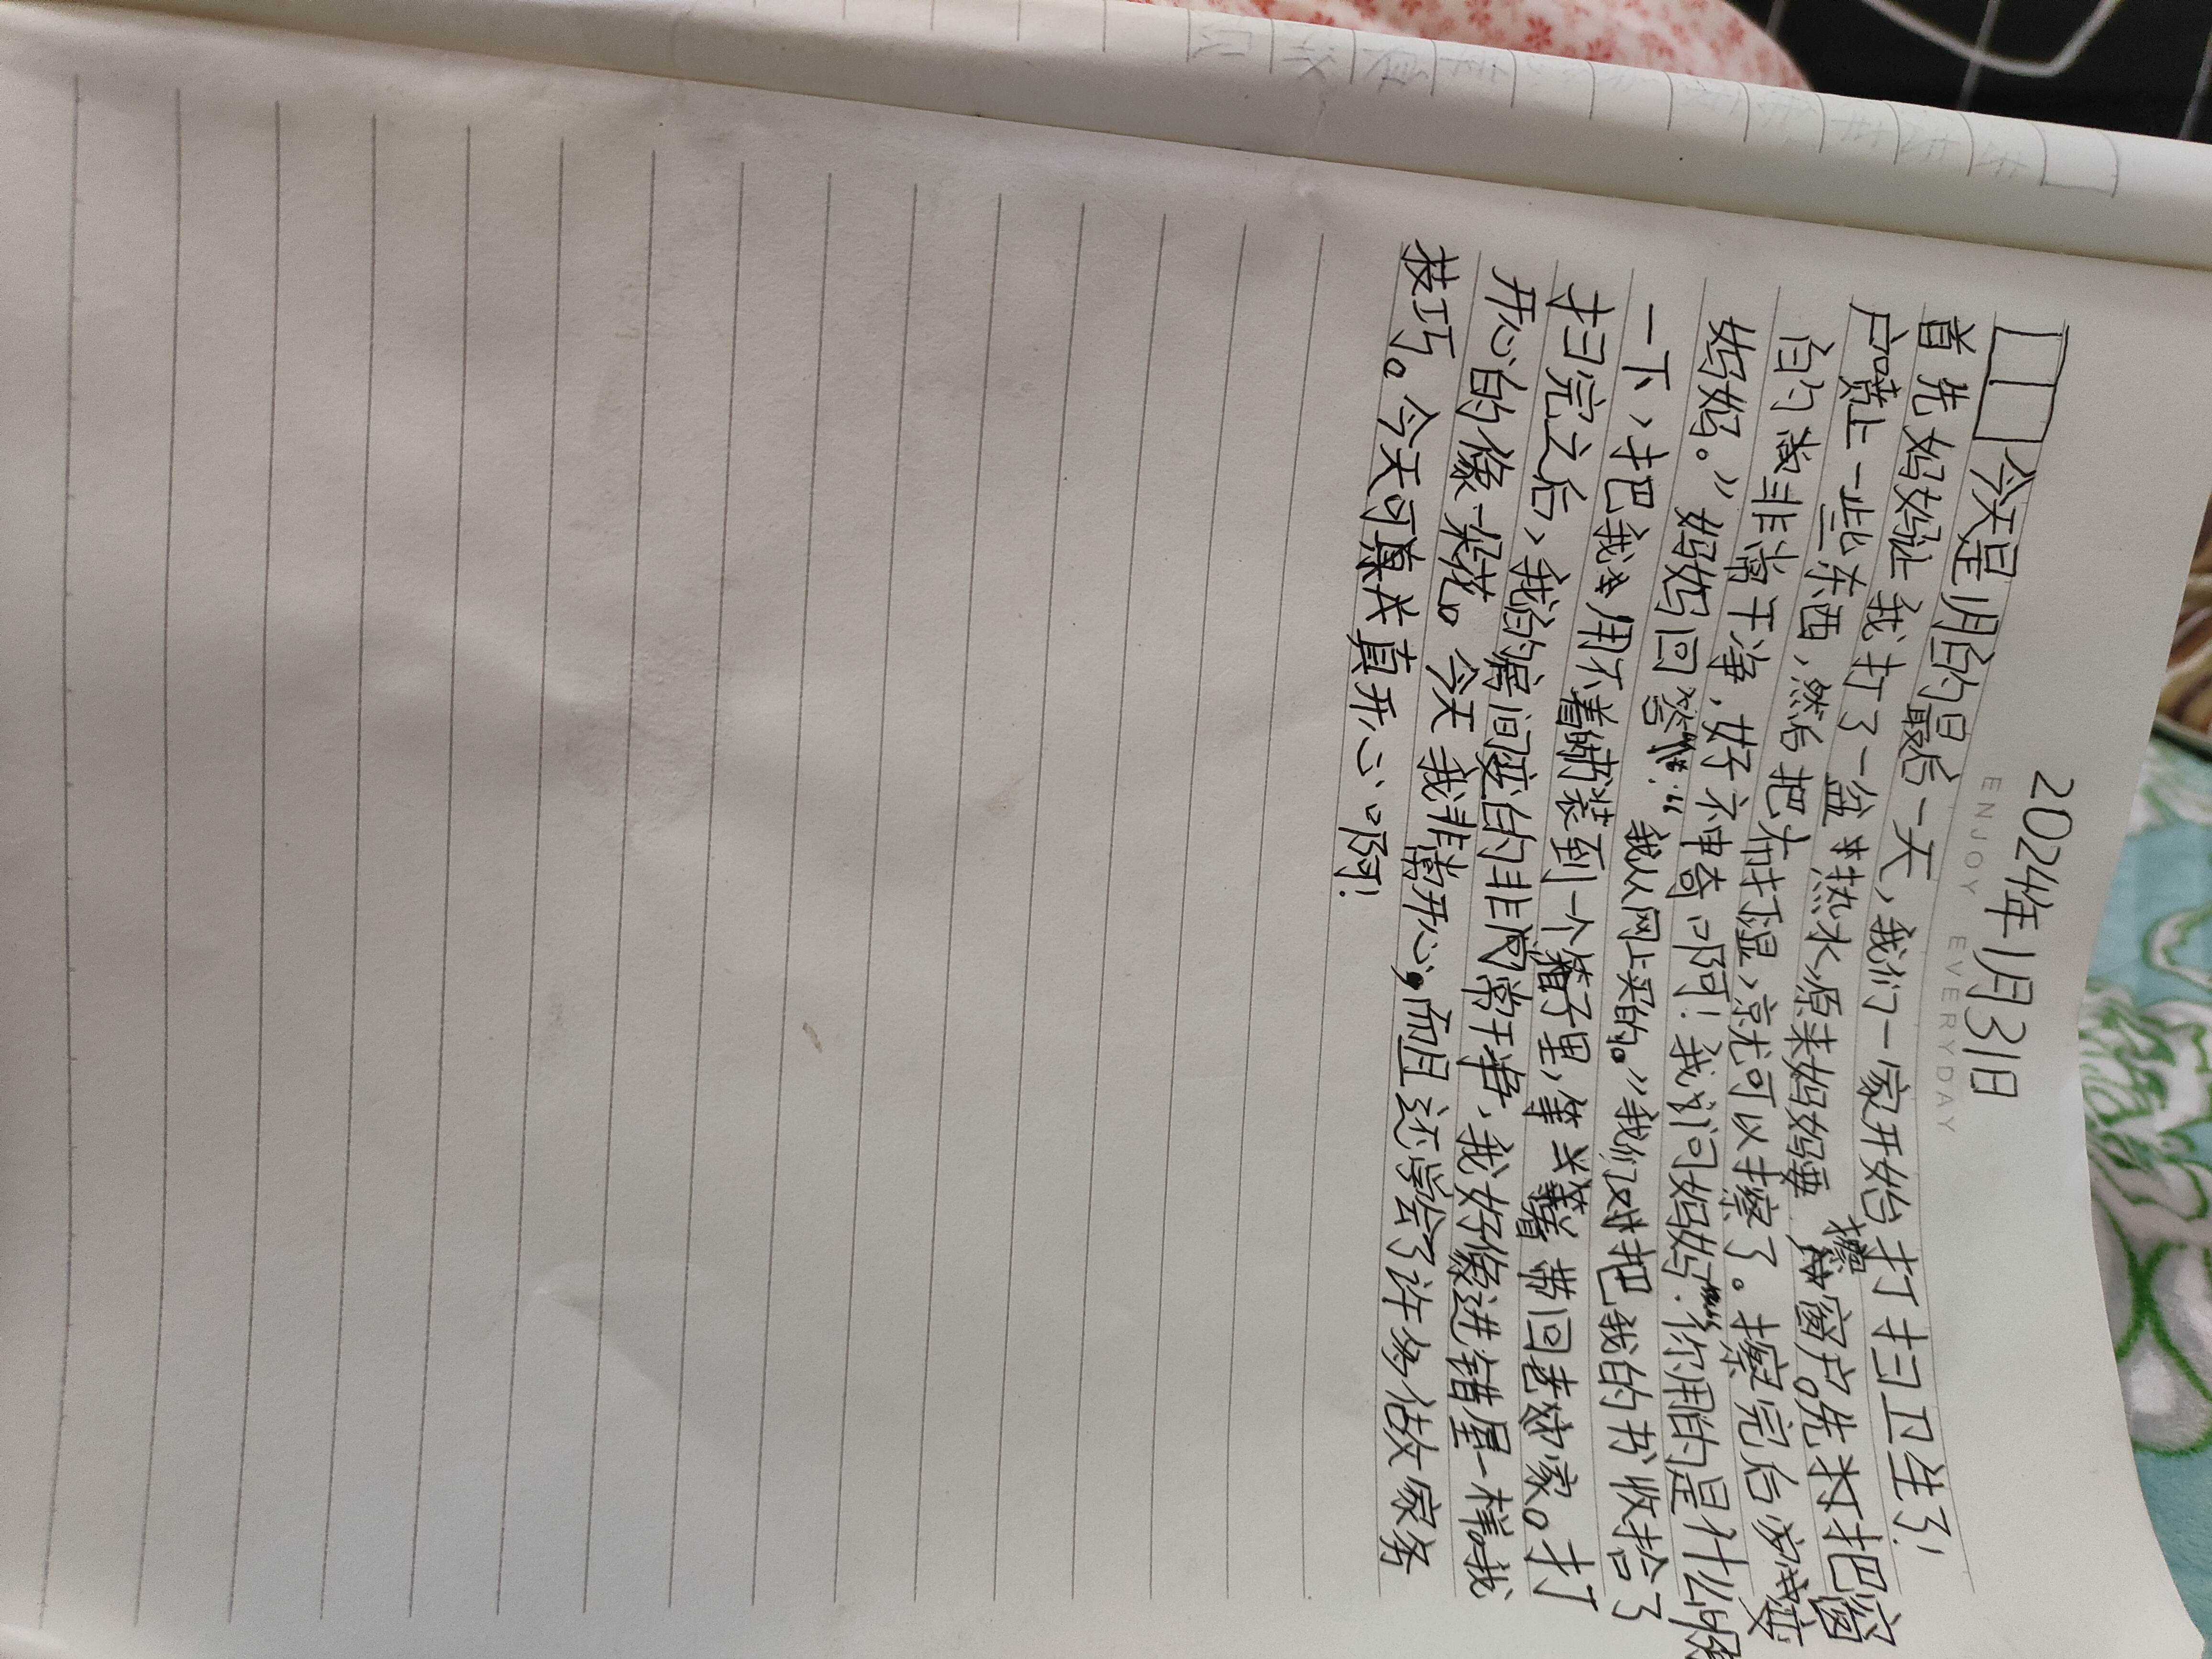 2024年1月31日
ENJOY EVERYDAY
今天是1月的最后一天，我们一家开始打扫卫生了！
首先妈妈让我打了一盆热水，原来妈妈要擦窗户。先把窗
户喷上一些东西，然后把布打湿，就可以擦了。擦完后变
的非常干净，好不神奇啊！我问妈妈：“你用的是什么呀
妈妈。”妈妈回答：“我从网上买的。”我们又把我的书收拾了
一下，把我用不着的书装到一个箱子里，等着带回老家。打
扫完之后，我的房间变的非常干净，我好像进错屋一样我
开心的像一朵花。今天我非常开心，而且还学会了许多做家务
技巧。今天可真开心啊！